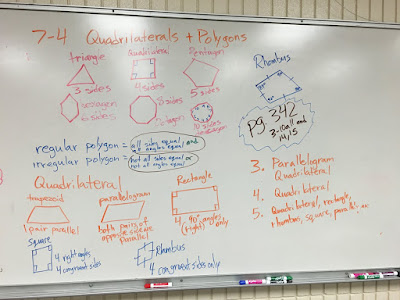 7-4 Quadrilaterals + Polygons
triangle
3 sides
Quadrilateral
4 sides
Pentagon
5 sides
Rhombus
hexagon
6 sides
8 sides
10 sides
pg 342
3-10all and
14,15
regular polygon = all sides equal and
all angles equal
irregular polygon = not all sides equal or
not all angles equal
Quadrilateral
trapezoid
1 pair parallel
parallelogram
both pairs of
opposite sides are
parallel
Rectangle
4 90° angles
(right) only
Square
4 right angles
4 congruent sides
Rhombus
4 congruent sides only
3. Parallelogram
Quadrilateral
4. Quadrilateral
5. Quadrilateral, rectangle,
rhombus, square, parallelogram